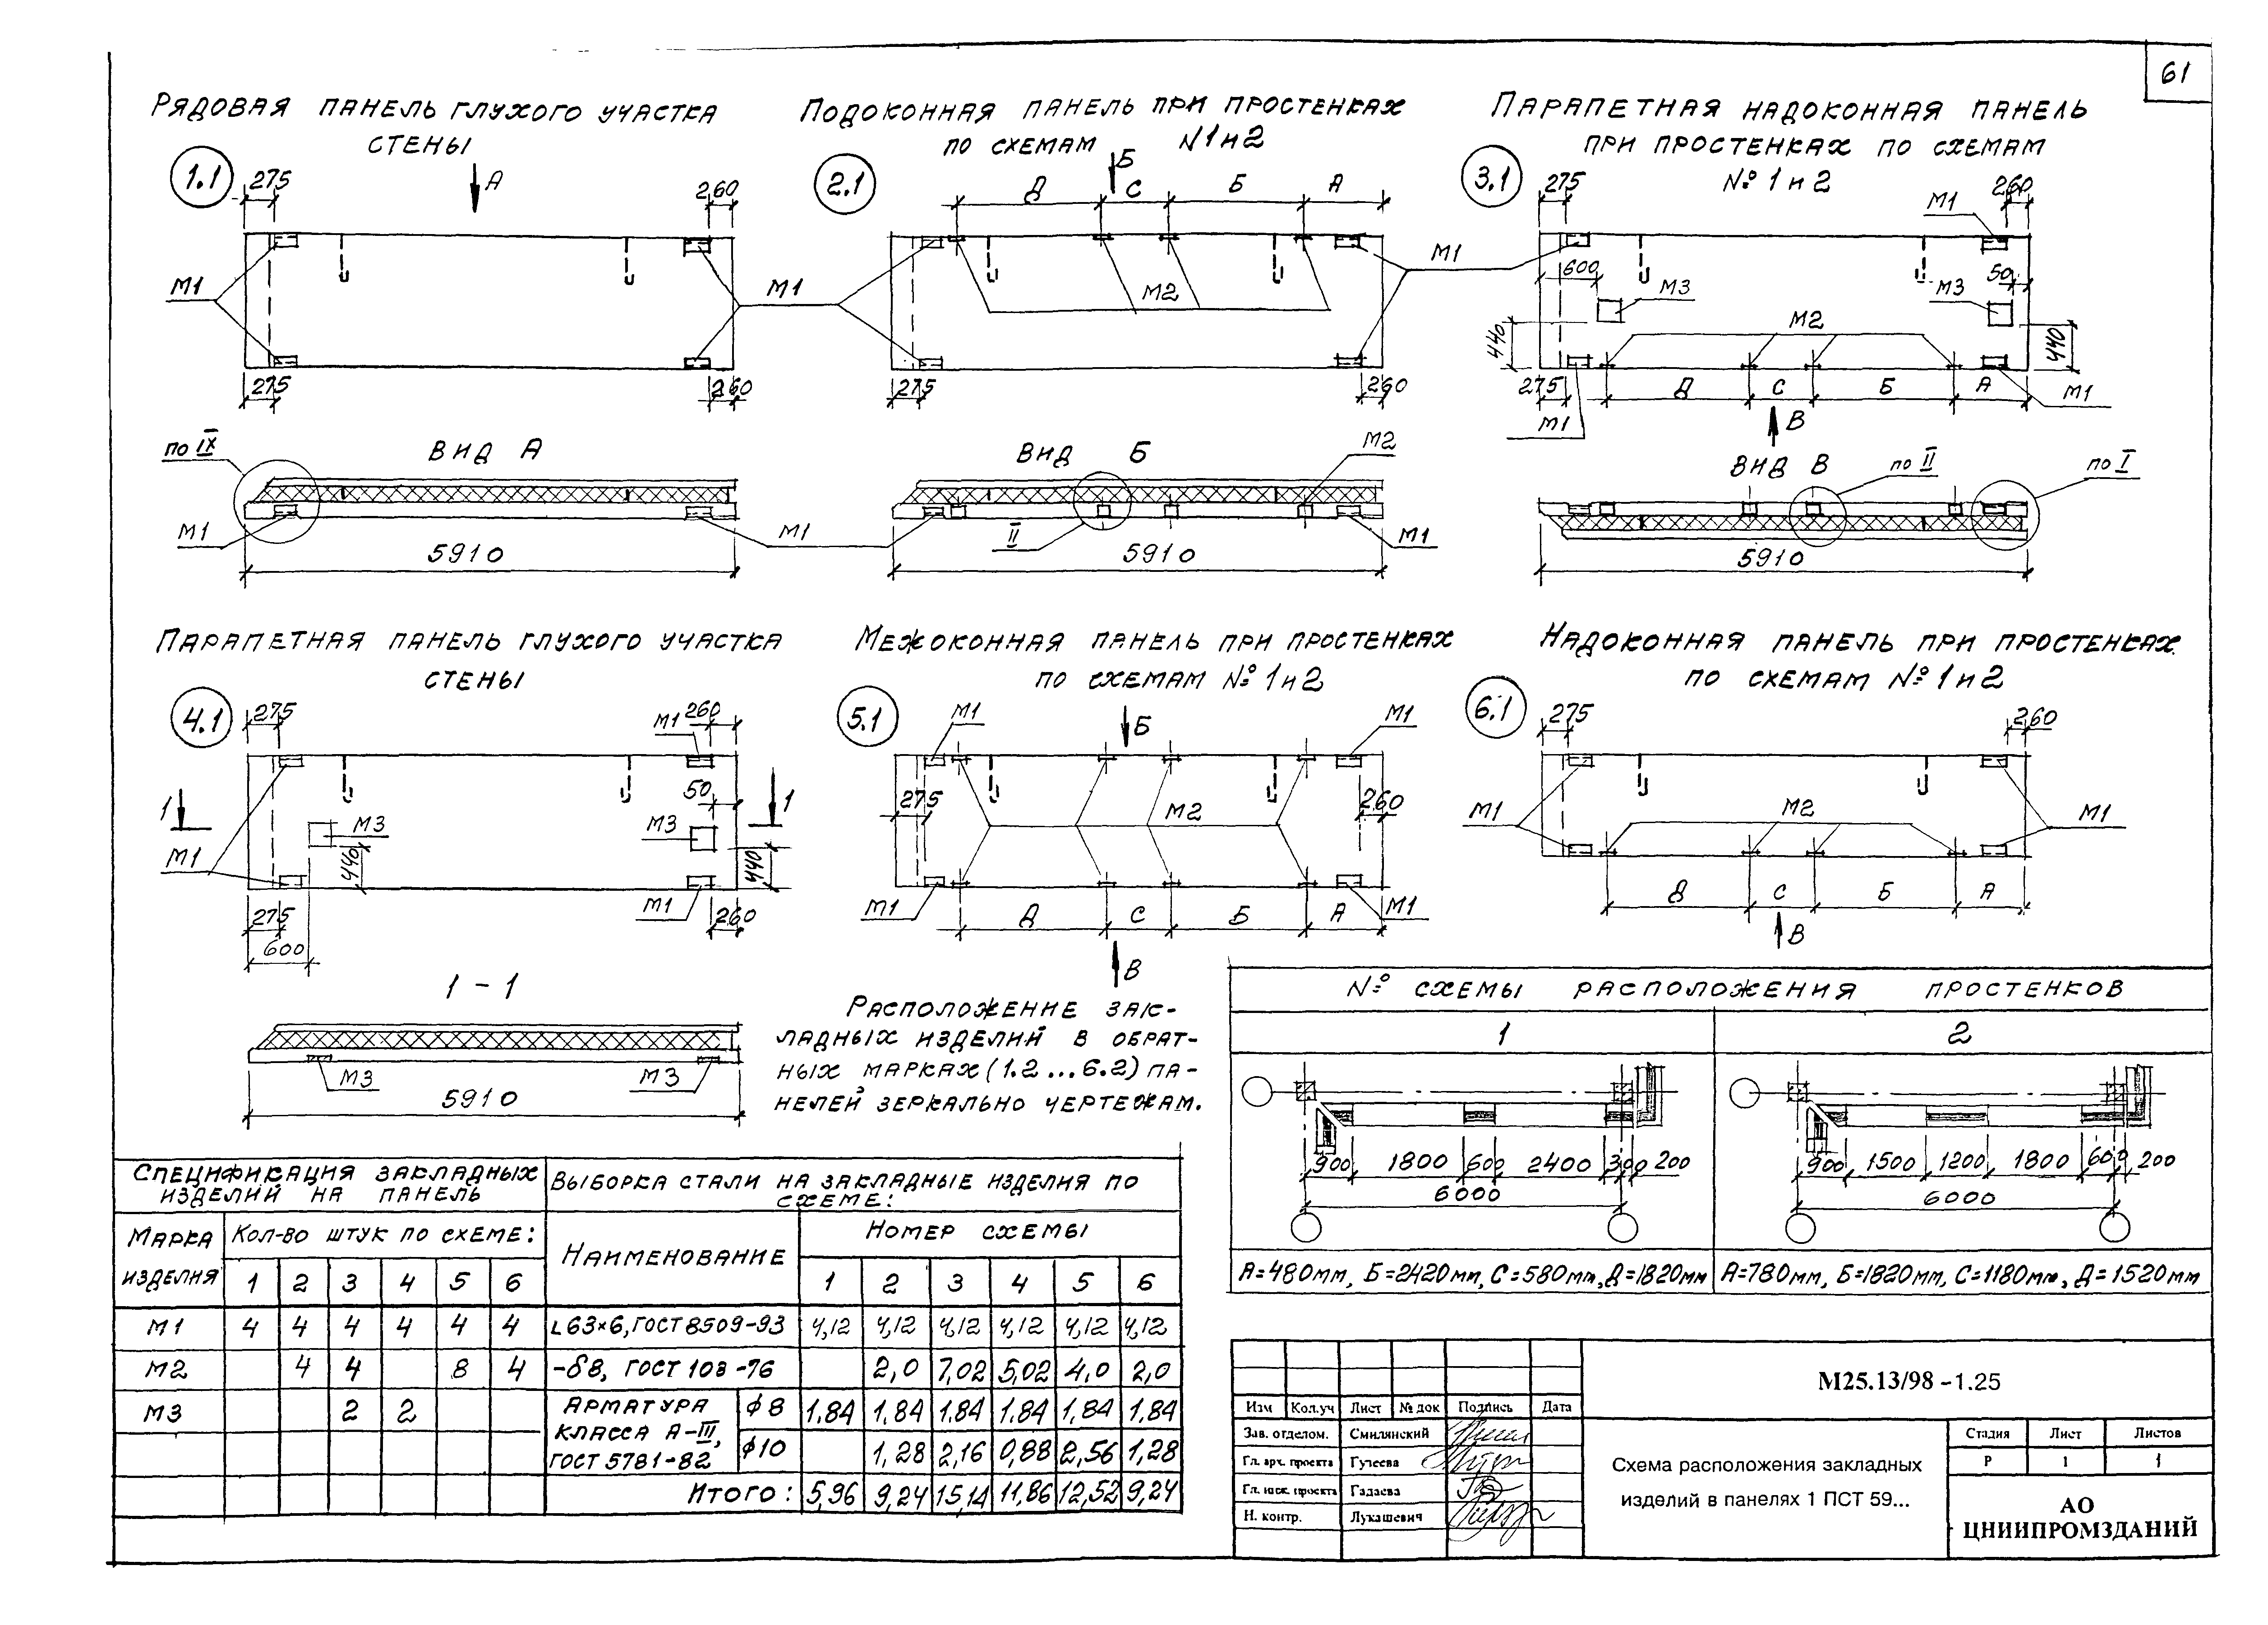 61
Рядовая панель глухого участка
стены
1.1
275
А
260
М1
М1
275
260
Подоконная панель при простенках
по схемам N1 и 2
2.1
Б
Д С Б А
М1
М2
275
260
Парапетная надоконная панель
при простенках по схемам
№ 1 и 2
3.1
275
М1
260
600
М3
50
М3
М2
440
440
275
Д С Б А
М1
М1
В
по IX
Вид А
М1
М1
5910
Вид Б
М2
II
М1
5910
Вид В
по II
по I
5910
Парапетная панель глухого участка
стены
4.1
275
М1
260
50
1
1
М3
М3
М1
440
440
М1
275
260
600
Межоконная панель при простенках
по схемам № 1 и 2
5.1
М1
Б
М1
275
М2
260
М1
М1
Д С Б А
В
Надоконная панель при простенках
по схемам № 1 и 2
6.1
275
260
М1
М2
М1
Д С Б А
В
1 - 1
М3
М3
5910
Расположение зак-
ладных изделий в обрат-
ных марках (1.2...6.2) па-
нелей зеркально чертежам.
№ схемы расположения простенков
1 2
900 1800 600 2400 300 200
6000
900 1500 1200 1800 600 200
6000
А=480мм, Б=2420мм, С=580мм, Д=1820мм
А=780мм, Б=1820мм, С=1180мм, Д=1520мм
Спецификация закладных
изделий на панель
Марка
изделия
Кол-во штук по схеме:
1 2 3 4 5 6
М1 4 4 4 4 4 4
М2 4 4 8 4
М3 2 2
Выборка стали на закладные изделия по
схеме:
Наименование
Номер схемы
1 2 3 4 5 6
L63×6, ГОСТ 8509-93 4,12 4,12 4,12 4,12 4,12 4,12
-δ8, ГОСТ 103-76 2,0 7,02 5,02 4,0 2,0
Арматура
класса А-III,
ГОСТ 5781-82
ϕ8 1.84 1.84 1.84 1.84 1,84 1,84
ϕ10 1,28 2,16 0,88 2,56 1,28
Итого: 5,96 9,24 15,14 11,86 12,52 9,24
М25.13/98 -1.25
Изм Кол.уч Лист № док Подпись Дата
Зав. отделом. Смилянский
Гл. арх. проекта Гутеева
Гл. инж. проекта Гадаева
Н. контр. Лукашевич
Схема расположения закладных
изделий в панелях 1 ПСТ 59...
Стадия Лист Листов
Р 1 1
АО
ЦНИИПРОМЗДАНИЙ